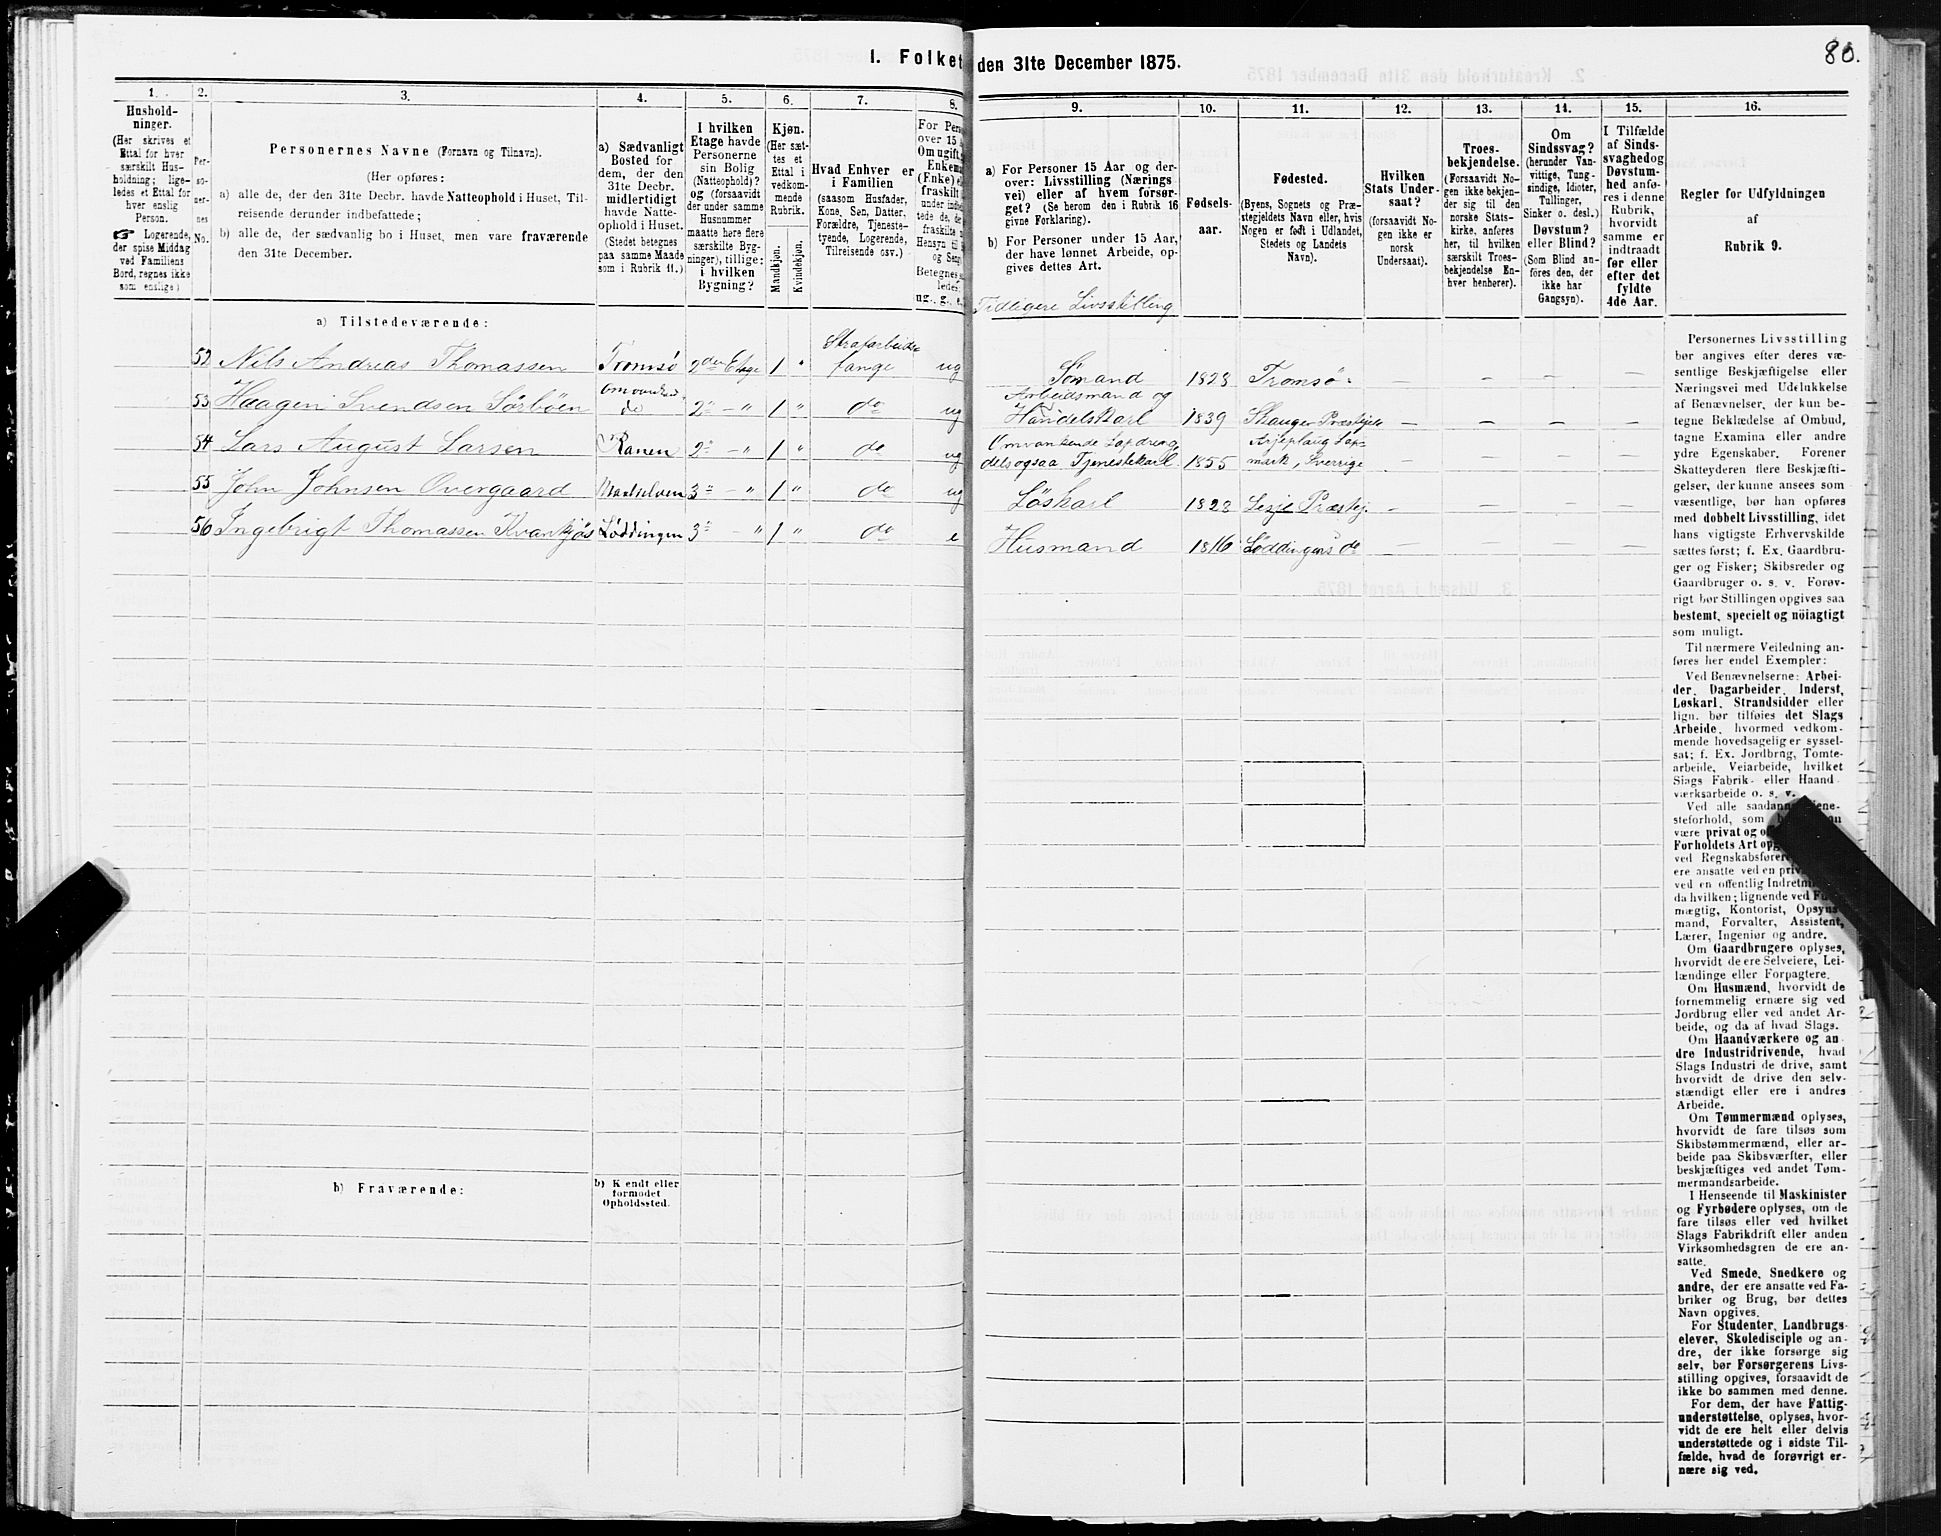 80.
I. Folket
den 31te December 1875.
1.
Hushold-
ninger.
(Her skrives et
Ettal for hver
særskilt Hus-
holdning; lige-
ledes et Ettal for
hver enslig
Person.
☞ Logerende,
der spise Middag
ved Familiens
Bord, regnes ikke
som enslige)
2.
Per-
so-
ner-
nes
No.
3.
Personernes Navne (Fornavn og Tilnavn).
(Her opføres:
a) alle de, der den 31te Decbr. havde Natteophold i Huset, Til-
reisende derunder indbefattede;
b) alle de, der sædvanlig bo i Huset, men vare fraværende
den 31te December.
4.
a) Sædvanligt
Bosted for
dem, der den
31te Decbr.
midlertidigt
havde Natte-
ophold i Huset.
(Stedet betegnes
paa samme Maade
som i Rubrik 11.)
5.
I hvilken
Etage havde
Personerne
sin Bolig
(Natteophold)?
og (forsaavidt
der under samme
Husnummer
maatte høre flere
særskilte Byg-
ninger), tillige:
i hvilken
Bygning?
6.
Kjøn.
(Her sæt-
tes et
Ettal i
vedkom-
mende
Rubrik.
Mandkjøn.
Kvindekjøn.
7.
Hvad Enhver er
i Familien
(saasom Husfader,
Kone, Søn, Datter,
Forældre, Tjeneste-
tyende, Logerende,
Tilreisende osv.)
8.
For Pers
over 15 A
Om ugift,
Enkem
(Enke) e
fraskilt
9.
a) For Personer 15 Aar og der-
over: Livsstilling (Nærings
vei) eller af hvem forsør-
get? (Se herom den i Rubrik 16
givne Forklaring).
b) For Personer under 15 Aar,
der have lønnet Arbeide, op-
gives dettes Art.
Tidligere Livsstilling
10.
Fødsels-
aar.
11.
Fødested.
(Byens, Sognets og Præ-
stegjeldets Navn eller, hvis
Nogen er født i Udlandet,
Stedets og Landets
Navn).
12.
Hvilken
Stats Under-
saat?
(forsaavidt No-
gen ikke er
norsk
Undersaat).
13.
Troes-
bekjendelse.
(Forsaavidt No-
gen ikke bekjen-
der sig til den
norske Stats-
kirke, anføres
her, til hvilken
særskilt Troes-
bekjendelse En-
hver henhører).
14.
Om
Sindssvag?
(herunder Van-
vittige, Tung-
sindige, Idioter,
Tullinger,
Sinker o. desl.)
Døvstum?
eller Blind?
(Som Blind an-
føres den, der
ikke har
Gangsyn).
15.
I Tilfælde
af Sinds-
svaghed og
Døvstum-
hed anfø-
res i denne
Rubrik,
hvorvidt
samme er
indtraadt
før eller
efter det
fyldte
4de Aar.
16.
Regler for Udfyldningen
af
Rubrik 9.
a) Tilstedeværende:
52 Nils Andreas Thomassen Tromsø 2den Etage 1 " Strafarbeids- fange ug Sømand 1828 Tromsø. — — — —
53 Haagen Svendsen Sørbøen omvankende 2" — " 1 " do ug Arbeidsmand og Handelskarl 1839 Skauger Præstegjeld — — — —
54 Lars August Larsen Ranen 2" — " 1 " do ug Omvankende Lapdreng dels ogsaa Tjenestekarl 1855 Arjeplaug Lapmark, Sverrige — — — —
55 John Johnsen Overgaard Maalselven 3" — " 1 " do ug Løskarl 1828 Lesje Præstej. — — — —
56 Ingebrigt Thomassen Kvankjøs Løddingen 3" — " 1 " do e Husmand 1816 Løddingens do — — — —
b) Fraværende:
b) Kendt eller
formodet
Opholdssted.
Personernes Livsstilling
bør angives efter deres væ-
sentlige Beskjæftigelse eller
Næringsvei med Udelukkelse
af Benævnelser, der kun be-
tegne Beklædelse af Ombud,
tagne Examina eller andre
ydre Egenskaber. Forener
Skatteyderen flere Beskjæfti-
gelser, der kunne ansees som
væsentlige, bør han opføres
med dobbelt Livsstilling, idet
hans vigtigste Erhvervskilde
sættes først; f. Ex. Gaardbru-
ger og Fisker; Skibsreder og
Gaardbruger o. s. v. Forøv-
rigt bør Stillingen opgives saa
bestemt, specielt og nöiagtigt
som muligt.
Til nærmere Veiledning an-
føres her endel Exempler:
Ved Benævnelserne: Arbei-
der, Dagarbeider, Inderst,
Løskarl, Strandsidder eller
lign. bør tilføies det Slags
Arbeide, hvormed vedkom-
mende hovedsagelig er syssel-
sat; f. Ex. Jordbrug, Tomte-
arbeide, Veiarbeide, hvilket
Slags Fabrik- eller Haand
værksarbeide o. s. v.
Ved alle saadanne Tjene-
steforhold, som
være privat og
Forholdets Art
ved Regnskabsførere
ere ansatte ved en
ved en offentlig
da hvilken; lignende ved
mægtig, Kontorist, Opsyns-
mand, Forvalter, Assistent,
Lærer, Ingeniør og andre.
Om Gaardbrugere oplyses,
hvorvidt de ere Selveiere, Lei-
lændinge eller Forpagtere.
Om Husmænd, hvorvidt de
fornemmelig ernære sig ved
Jordbrug eller ved andet Ar-
beide, og da af hvad Slags.
Om Haandværkere og an-
dre Industridrivende, hvad
Slags Industri de drive, samt
hvorvidt de drive den selv-
stændigt eller ere i andres
Arbeide.
Om Tømmermænd oplyses,
hvorvidt de fare tilsøs som
Skibstømmermænd, eller ar-
beide paa Skibsværfter, eller
beskjæftiges ved andet Tøm-
mermandsarbeide.
I Henseende til Maskinister
og Fyrbødere oplyses, om de
fare tilsøs eller ved hvilket
Slags Fabrikdrift eller anden
Virksomhedsgren de ere an-
satte.
Ved Smede, Snedkere og
andre, der ere ansatte ved Fa-
briker og Brug, bør dettes
Navn opgives.
For Studenter, Landbrugs-
elever, Skoledisciple og an-
dre, der ikke forsørge sig
selv, bør Forsørgerens Livs-
stilling opgives, forsaavidt de
ikke bo sammen med denne.
For dem, der have Fattig-
understøttelse, oplyses, hvor-
vidt de ere helt eller delvis
understøttede og i sidste Til-
fælde, hvad de forøvrigt er-
nære sig ved.